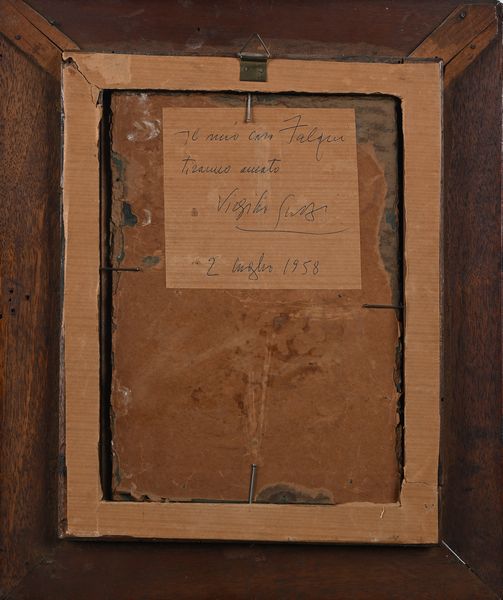 Al mio caro Falqui
tiranno amato
Virgilio Guzzi
2 luglio 1958